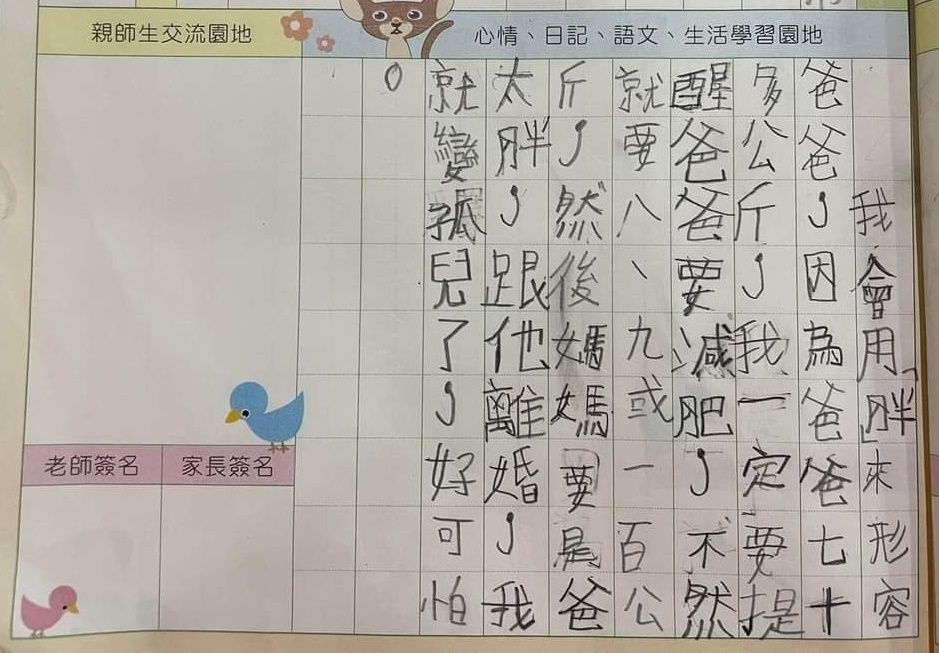 親師生交流園地
心情、日記、語文、生活學習園地
我會用「胖」來形容
爸爸，因為爸爸七十
多公斤，我一定要提
醒爸爸要減肥，不然
就要八、九或一百公
斤，然後媽媽要是爸
太胖，跟他離婚，我
就變孤兒了，好可怕
。
老師簽名
家長簽名